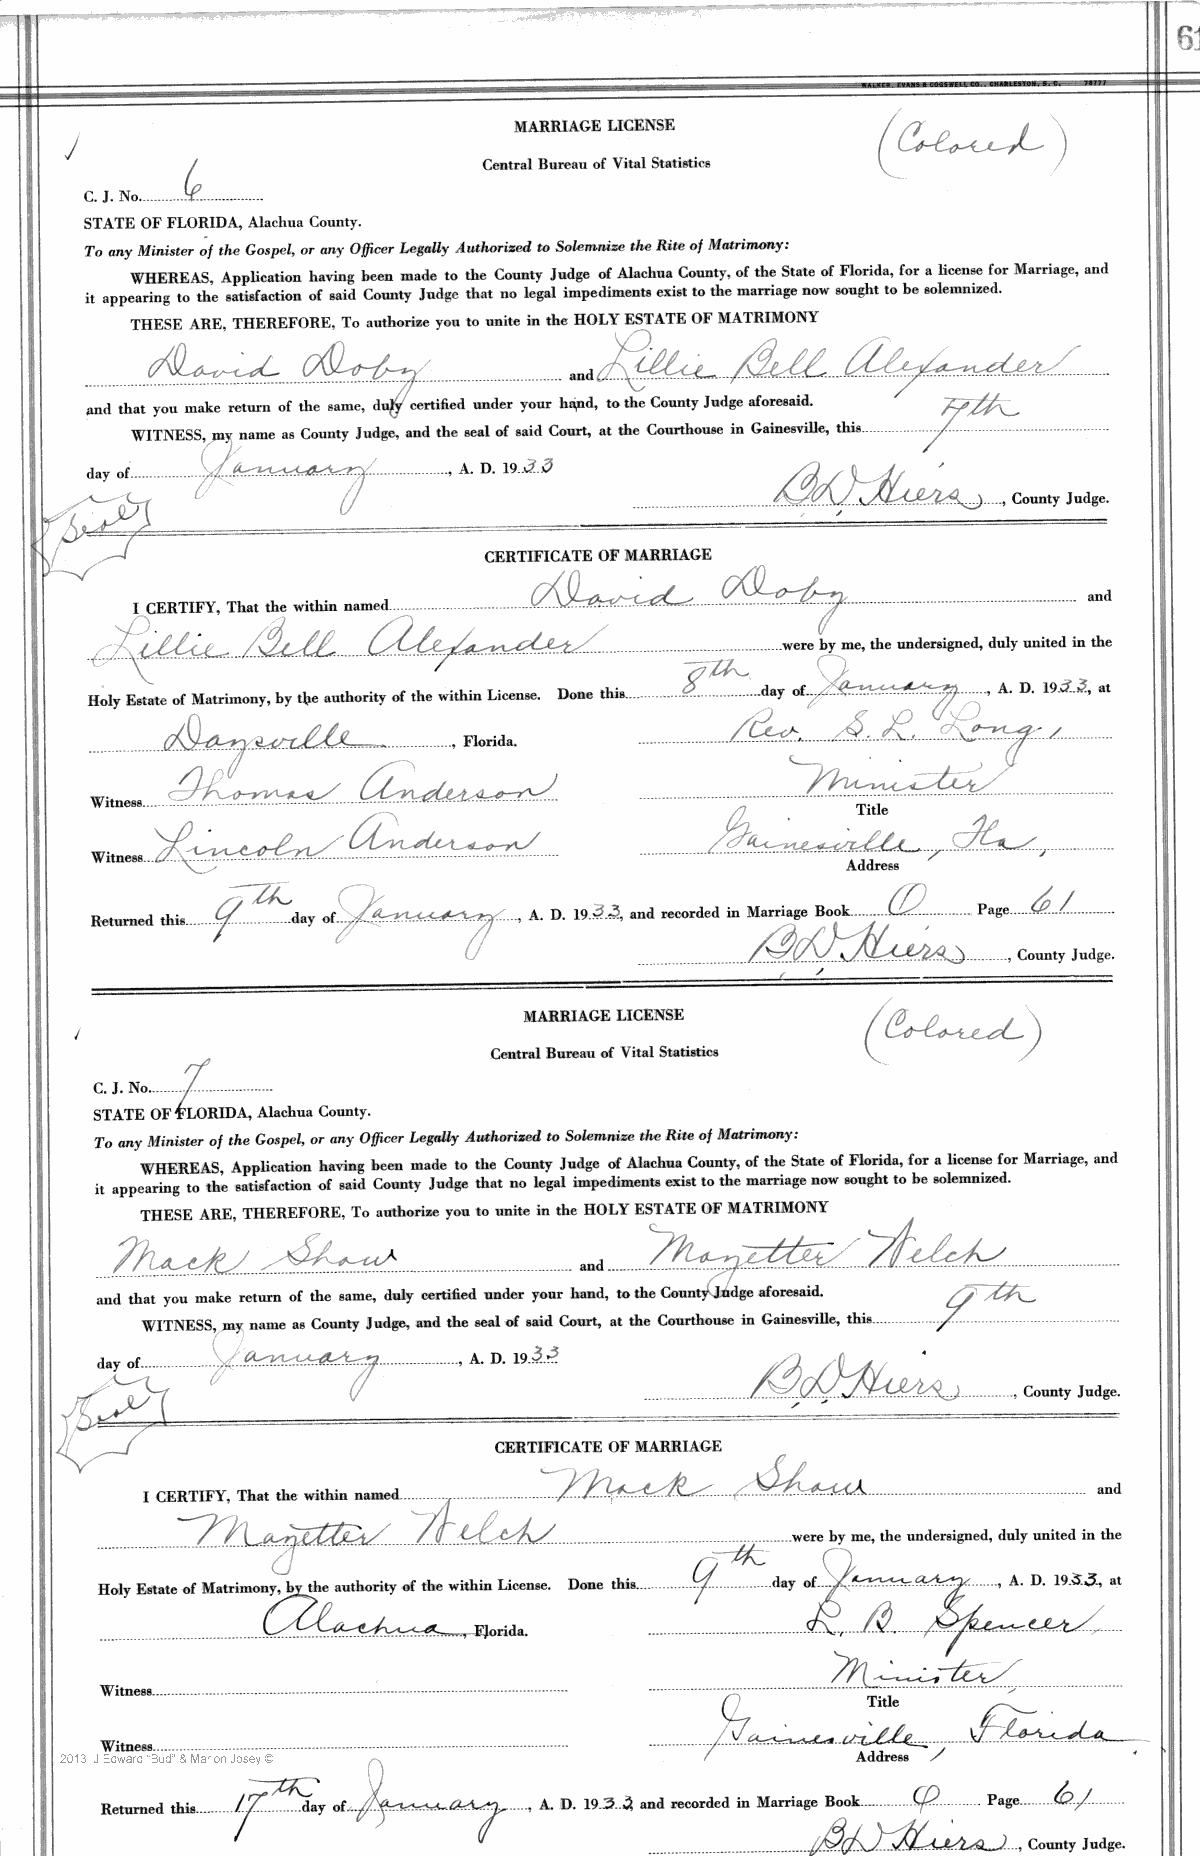 61
WALKER, EVANS & COGSWELL CO., CHARLESTON, S. C. 78777
MARRIAGE LICENSE
(Colored)
Central Bureau of Vital Statistics
C. J. No. 6
STATE OF FLORIDA, Alachua County.
To any Minister of the Gospel, or any Officer Legally Authorized to Solemnize the Rite of Matrimony:
WHEREAS, Application having been made to the County Judge of Alachua County, of the State of Florida, for a license for Marriage, and
it appearing to the satisfaction of said County Judge that no legal impediments exist to the marriage now sought to be solemnized.
THESE ARE, THEREFORE, To authorize you to unite in the HOLY ESTATE OF MATRIMONY
David Doby and Lillie Bell Alexander
and that you make return of the same, duly certified under your hand, to the County Judge aforesaid.
WITNESS, my name as County Judge, and the seal of said Court, at the Courthouse in Gainesville, this 7th
day of January, A. D. 1933
B D Hiers, County Judge.
Seal
CERTIFICATE OF MARRIAGE
I CERTIFY, That the within named David Doby and
Lillie Bell Alexander were by me, the undersigned, duly united in the
Holy Estate of Matrimony, by the authority of the within License. Done this 8th day of January, A. D. 1933, at
Daysville, Florida. Rev. S. L. Long,
Witness Thomas Anderson Minister
Title
Witness Lincoln Anderson Gainesville, Fla,
Address
Returned this 9th day of January, A. D. 1933, and recorded in Marriage Book O Page 61
B D Hiers, County Judge.
MARRIAGE LICENSE
(Colored)
Central Bureau of Vital Statistics
C. J. No. 7
STATE OF FLORIDA, Alachua County.
To any Minister of the Gospel, or any Officer Legally Authorized to Solemnize the Rite of Matrimony:
WHEREAS, Application having been made to the County Judge of Alachua County, of the State of Florida, for a license for Marriage, and
it appearing to the satisfaction of said County Judge that no legal impediments exist to the marriage now sought to be solemnized.
THESE ARE, THEREFORE, To authorize you to unite in the HOLY ESTATE OF MATRIMONY
Mack Shaw and Mayetter Welch
and that you make return of the same, duly certified under your hand, to the County Judge aforesaid.
WITNESS, my name as County Judge, and the seal of said Court, at the Courthouse in Gainesville, this 9th
day of January, A. D. 1933
B D Hiers, County Judge.
Seal
CERTIFICATE OF MARRIAGE
I CERTIFY, That the within named Mack Shaw and
Mayetter Welch were by me, the undersigned, duly united in the
Holy Estate of Matrimony, by the authority of the within License. Done this 9th day of January, A. D. 1933, at
Alachua, Florida. L. B. Spencer,
Witness Minister,
Title
Witness Gainesville, Florida.
2013 J Edward "Bud" & Marion Josey © Address
Returned this 17th day of January, A. D. 1933, and recorded in Marriage Book O Page 61
B D Hiers, County Judge.